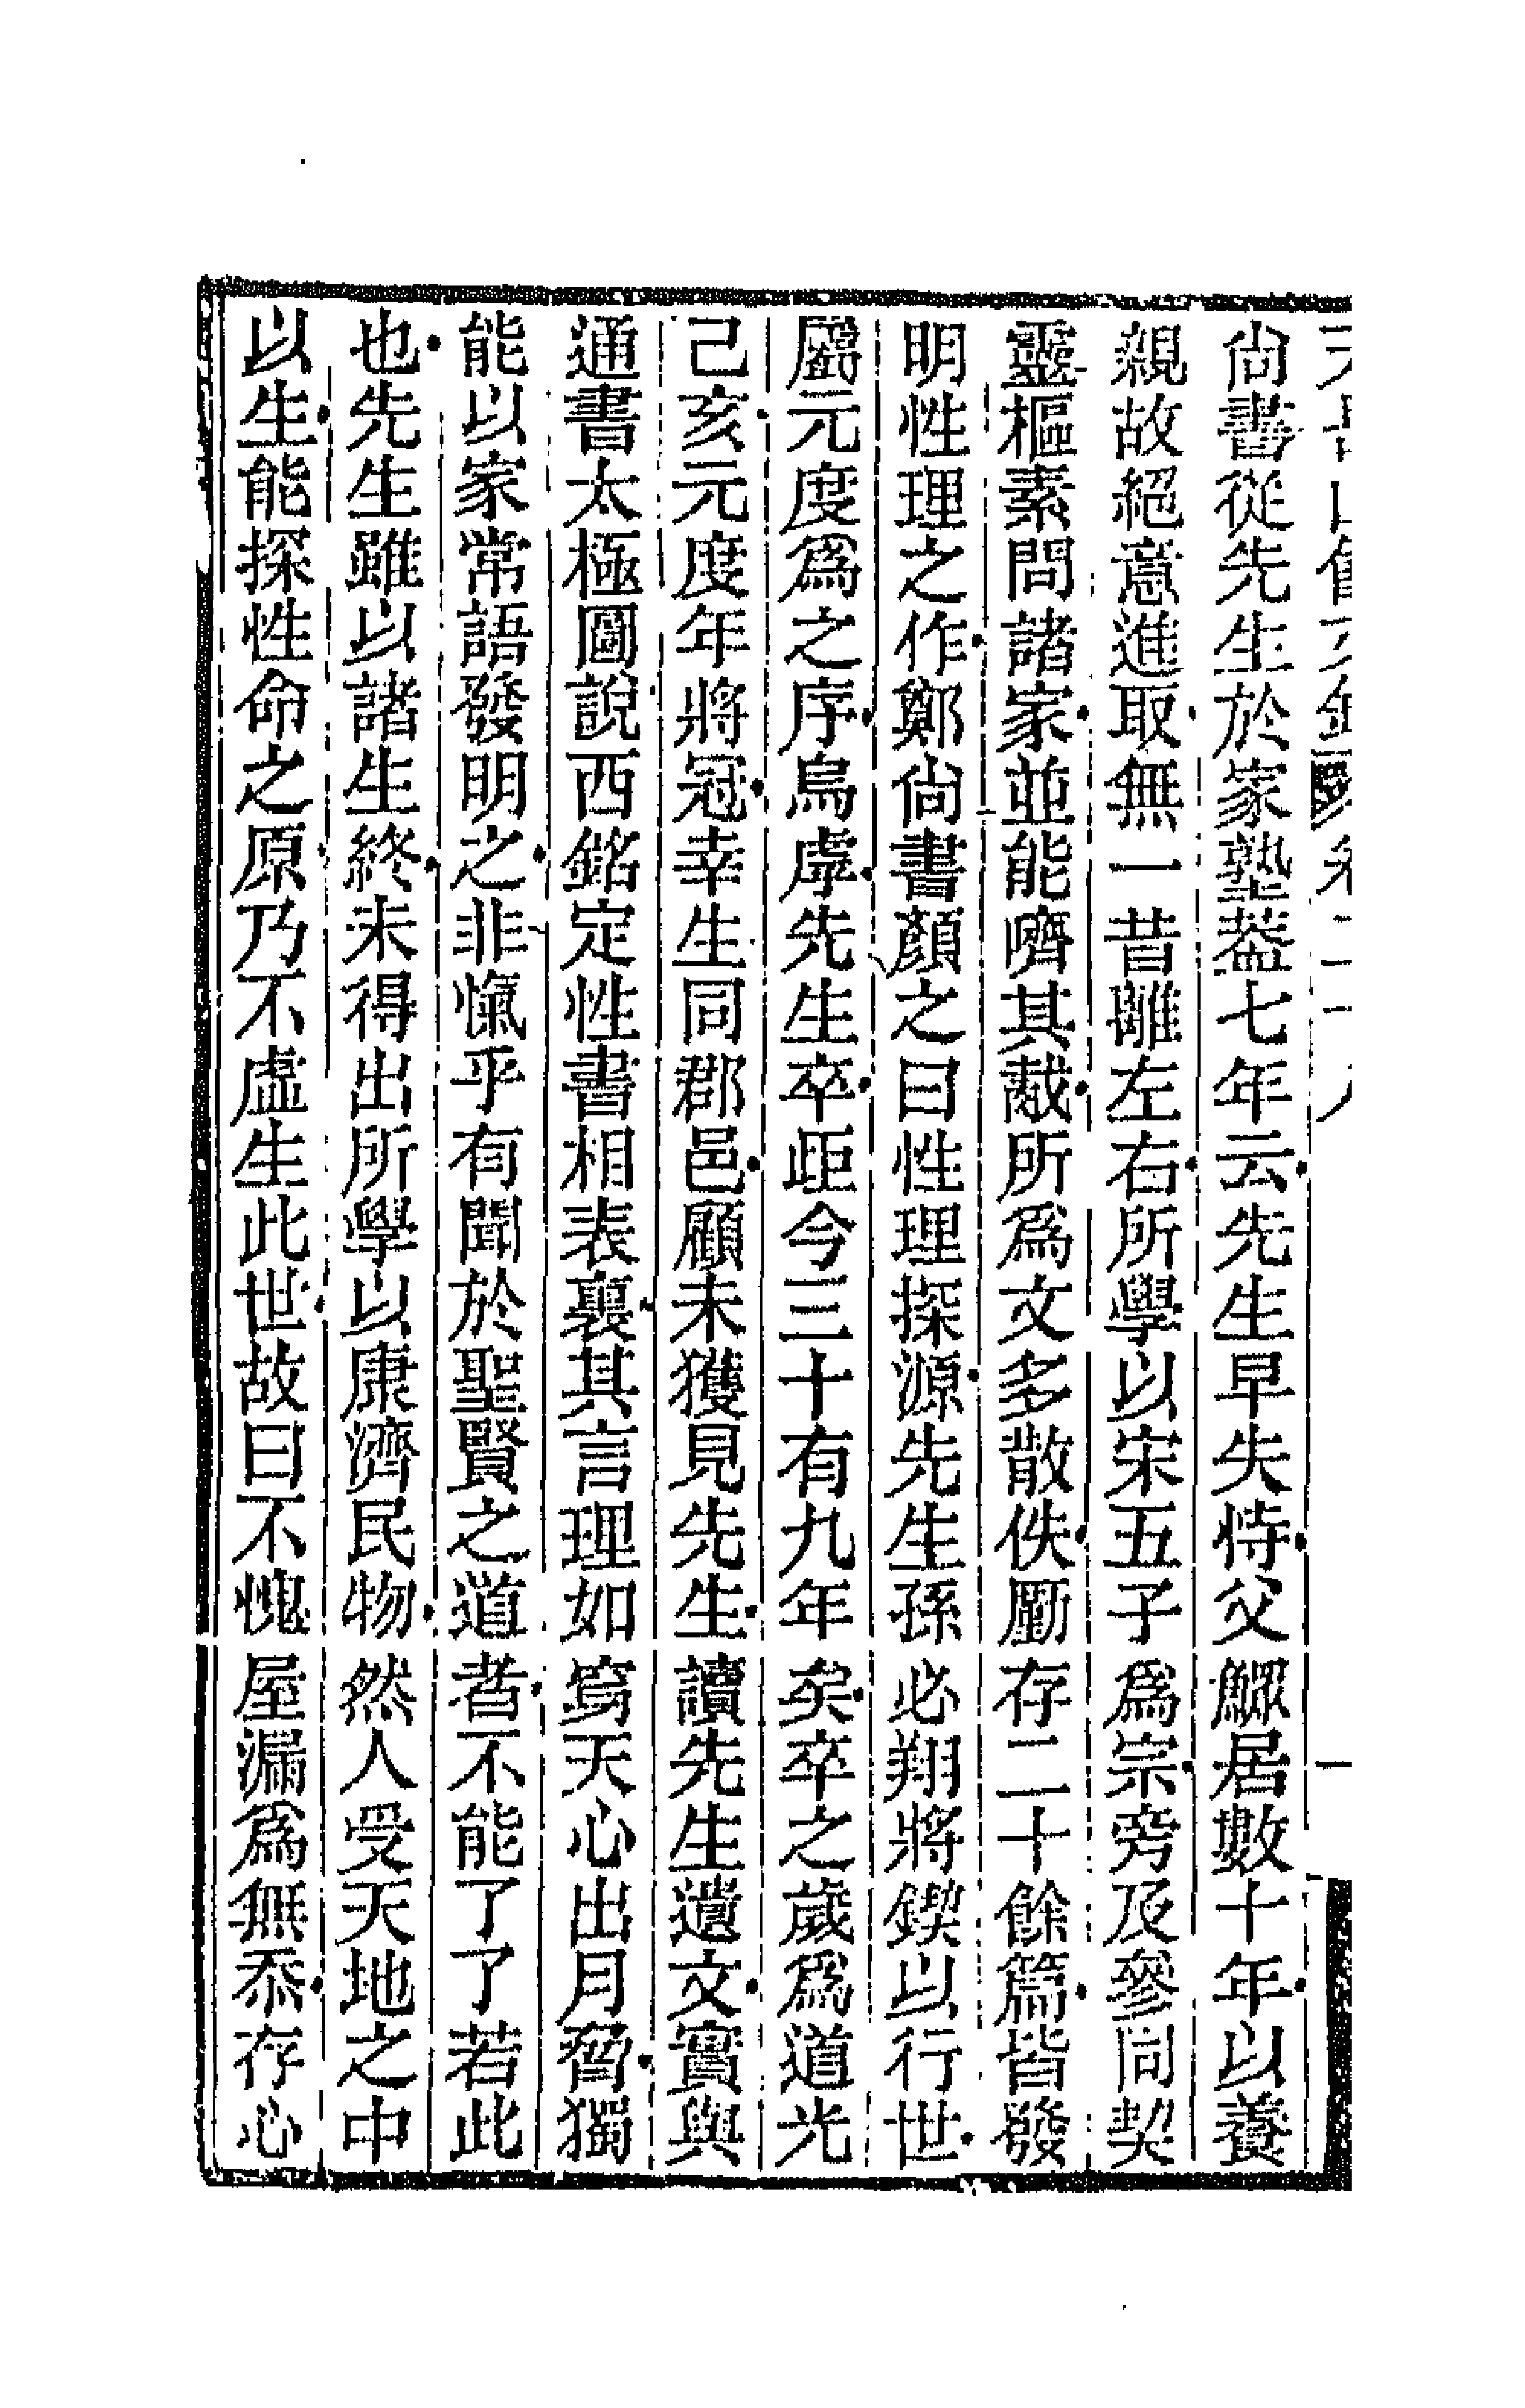 尙書從先生於家塾葢七年云先生早失恃父鰥居數十年以養
親故絕意進取無一昔離左右所學以宋五子爲宗旁及參同契
靈樞素問諸家並能嚌其胾所爲文多散佚劂存二十餘篇皆發
明性理之作鄭尙書顏之曰性理探源先生孫必翔將鍥以行世
屬元度爲之序烏虖先生卒距今三十有九年矣卒之歲爲道光
己亥元度年將冠幸生同郡邑顧未獲見先生讀先生遺文實與
通書太極圖說西銘定性書相表裏其言理如寫天心出月脅獨
能以家常語發明之非愾乎有聞於聖賢之道者不能了了若此
也先生雖以諸生終未得出所學以康濟民物然人受天地之中
以生能探性命之原乃不虛生此世故曰不愧屋漏爲無忝存心